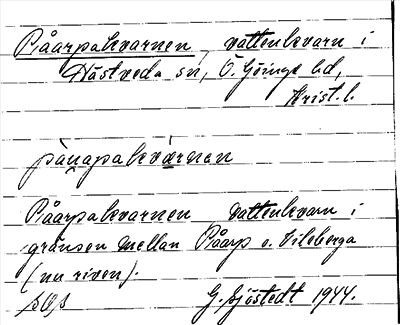 Råarpakvarnen, vattenkvarn i
Hästveda sn, Ö. Göinge hd,
Krist. l.
Råarpakvarnen vattenkvarn i
gränsen mellan Råarp o. Vileberga
(nu riven).
G. Sjöstedt 1944.